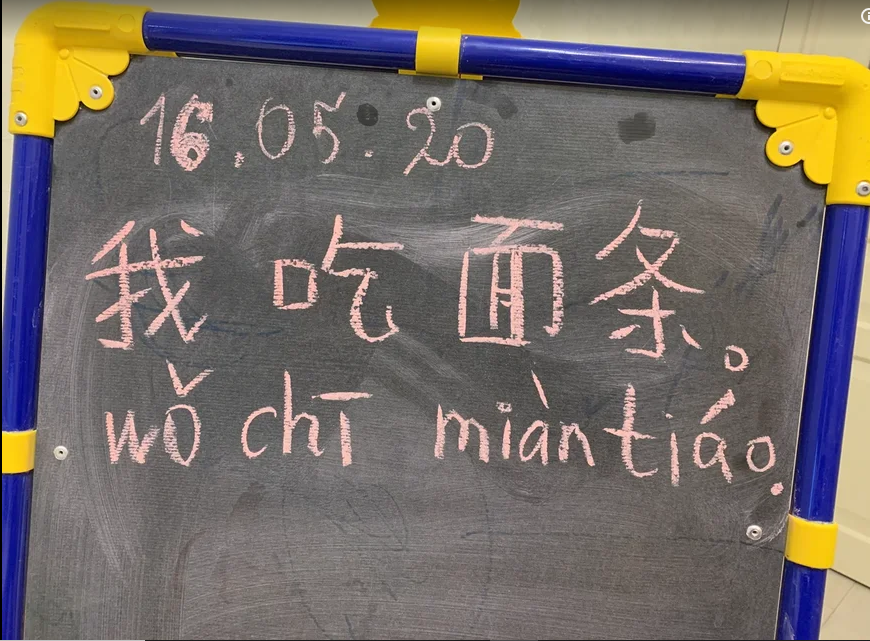 16.05.20
我吃面条。
wǒ chī miàntiáo.